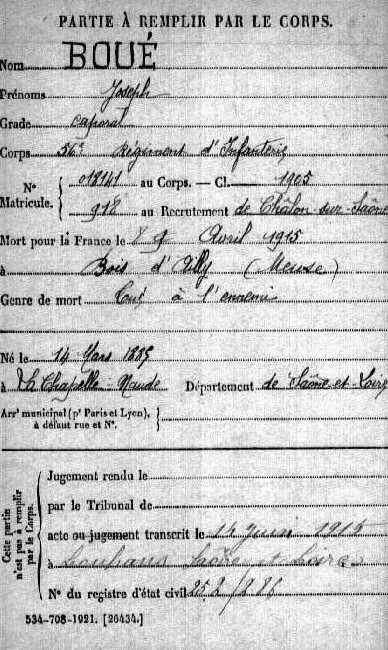 PARTIE À REMPLIR PAR LE CORPS.
Nom BOUÉ
Prénoms Joseph
Grade Caporal
Corps 56e Régiment d'Infanterie
N° Matricule.
013141 au Corps. — Cl. 1905
918 au Recrutement de Châlon-sur-Saône
Mort pour la France le 8 9 Avril 1915
à Bois d'Ailly (Meuse)
Genre de mort Tué à l'ennemi
Né le 14 Mars 1885
à La Chapelle-Naude Département de Saône-et-Loire
Arrt municipal (pr Paris et Lyon),
à défaut rue et N°.
Cette partie n'est pas à remplir par le Corps.
Jugement rendu le
par le Tribunal de
acte ou jugement transcrit le 14 Juin 1915
à Louhans Saône et Loire
N° du registre d'état civil
534-708-1921. [26434.]